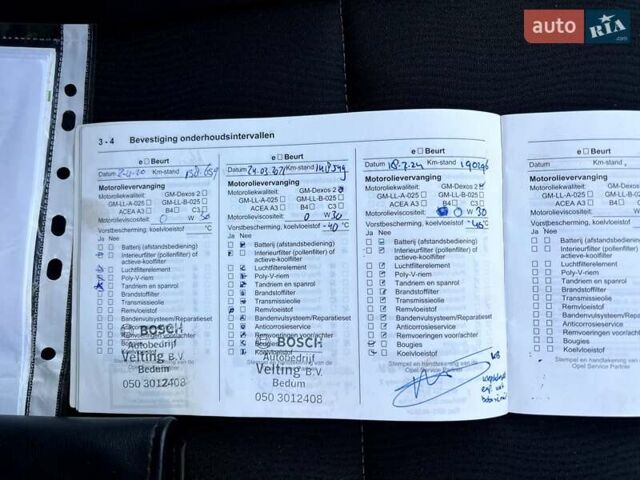 auto RIA .com
3 - 4 Bevestiging onderhoudsintervallen
e □ Beurt
Datum Km-stand
Motorolievervanging
Motoroliekwaliteit: GM-Dexos 2 □
GM-LL-A-025 □ GM-LL-B-025 □
ACEA A3 □ B4 □ C3 □
Motorolieviscositeit: 0 W 30
Vorstbescherming, koelvloeistof °C
Ja Nee
Batterij (afstandsbediening)
Interieurfilter (pollenfilter) of
actieve-koolfilter
Luchtfilterelement
Poly-V-riem
Tandriem en spanrol
Brandstoffilter
Transmissieolie
Remvloeistof
Bandenvulsysteem/Reparatieset
Anticorrosieservice
Remvoeringen voor/achter
Bougies
Koelvloeistof
BOSCH
Autobedrijf
Velting B.V.
Bedum
050 3012408
e □ Beurt
Datum Km-stand
Motorolievervanging
Motoroliekwaliteit: GM-Dexos 2
GM-LL-A-025 □ GM-LL-B-025 □
ACEA A3 □ B4 □ C3 □
Motorolieviscositeit: 0 W 30
Vorstbescherming, koelvloeistof -40 °C
Ja Nee
Batterij (afstandsbediening)
Interieurfilter (pollenfilter) of
actieve-koolfilter
Luchtfilterelement
Poly-V-riem
Tandriem en spanrol
Brandstoffilter
Transmissieolie
Remvloeistof
Bandenvulsysteem/Reparatieset
Anticorrosieservice
Remvoeringen voor/achter
Bougies
Koelvloeistof
BOSCH
Autobedrijf
Velting B.V.
Bedum
050 3012408
e □ Beurt
Datum 18-7-24 Km-stand
Motorolievervanging
Motoroliekwaliteit: GM-Dexos 2
GM-LL-A-025 □ GM-LL-B-025 □
ACEA A3 □ B4 □ C3 □
Motorolieviscositeit: 0 W 30
Vorstbescherming, koelvloeistof °C
Ja Nee
Batterij (afstandsbediening)
Interieurfilter (pollenfilter) of
actieve-koolfilter
Luchtfilterelement
Poly-V-riem
Tandriem en spanrol
Brandstoffilter
Transmissieolie
Remvloeistof
Bandenvulsysteem/Reparatieset
Anticorrosieservice
Remvoeringen voor/achter
Bougies
Koelvloeistof
Stempel en handtekening van de
Opel Service Partner
e □ Beurt
Datum Km-stand
Motorolievervanging
Motoroliekwaliteit:
GM-LL-A-025 □
ACEA A3 □
Motorolieviscositeit:
Vorstbescherming, koelvloeistof
Ja Nee
Batterij (afstandsbediening)
Interieurfilter (pollenfilter)
actieve-koolfilter
Luchtfilterelement
Poly-V-riem
Tandriem en spanrol
Brandstoffilter
Transmissieolie
Remvloeistof
Bandenvulsysteem/
Anticorrosieservice
Remvoeringen
Bougies
Koelvloeistof
Stempel en handtekening
Opel Service Partner